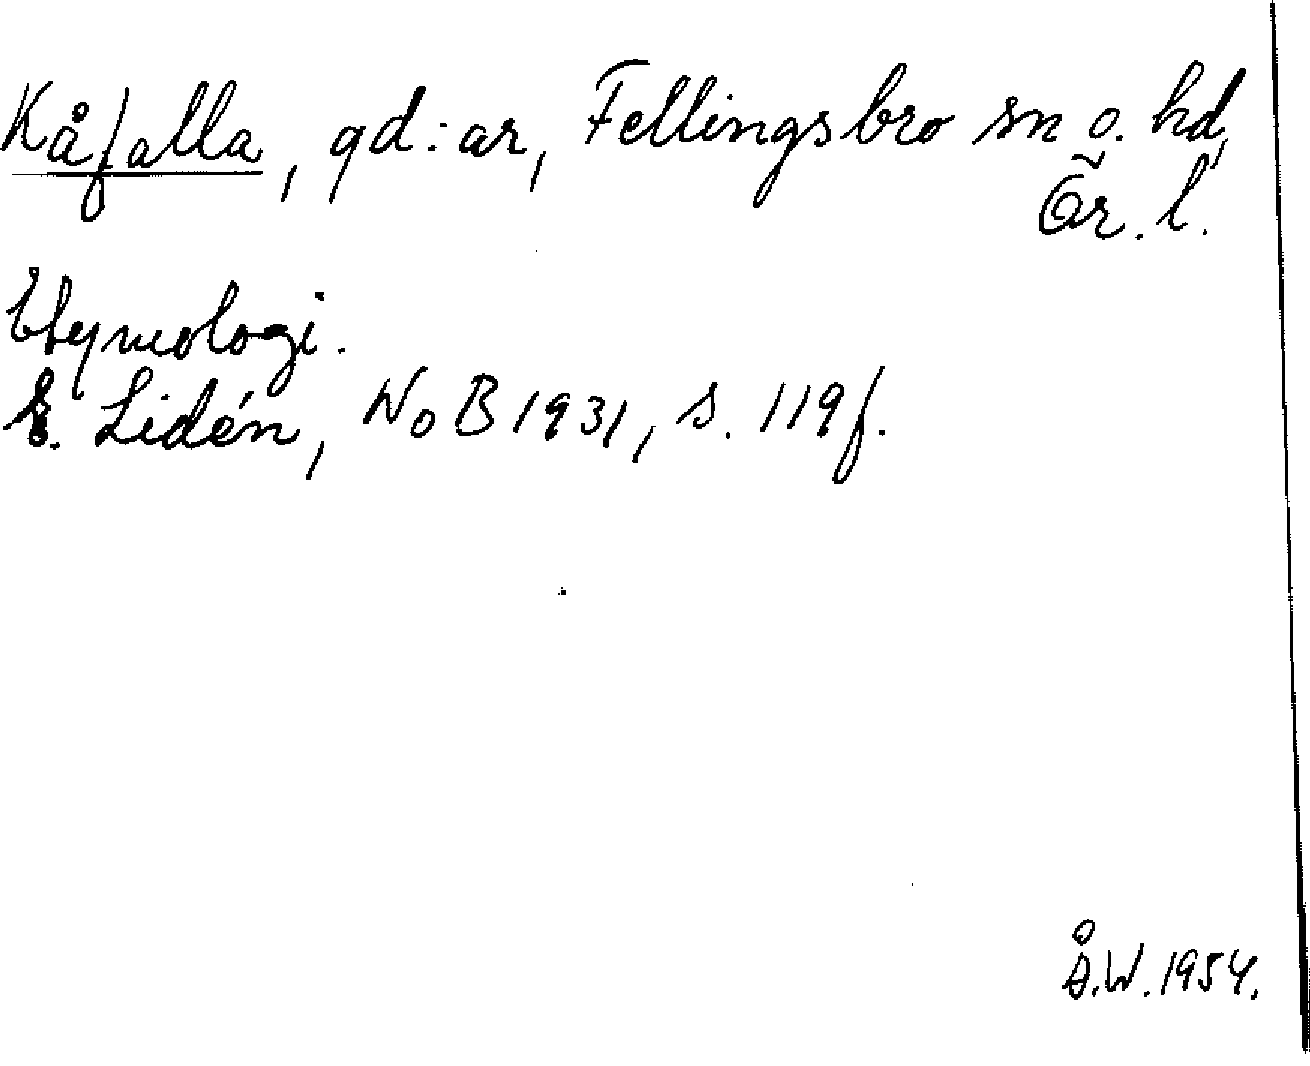 Kåfalla, gd:ar, Fellingsbro sn o. hd,
Ör. l.
Etymologi.
E. Lidén, NoB 1931, s. 119 f.
Å.W. 1954.